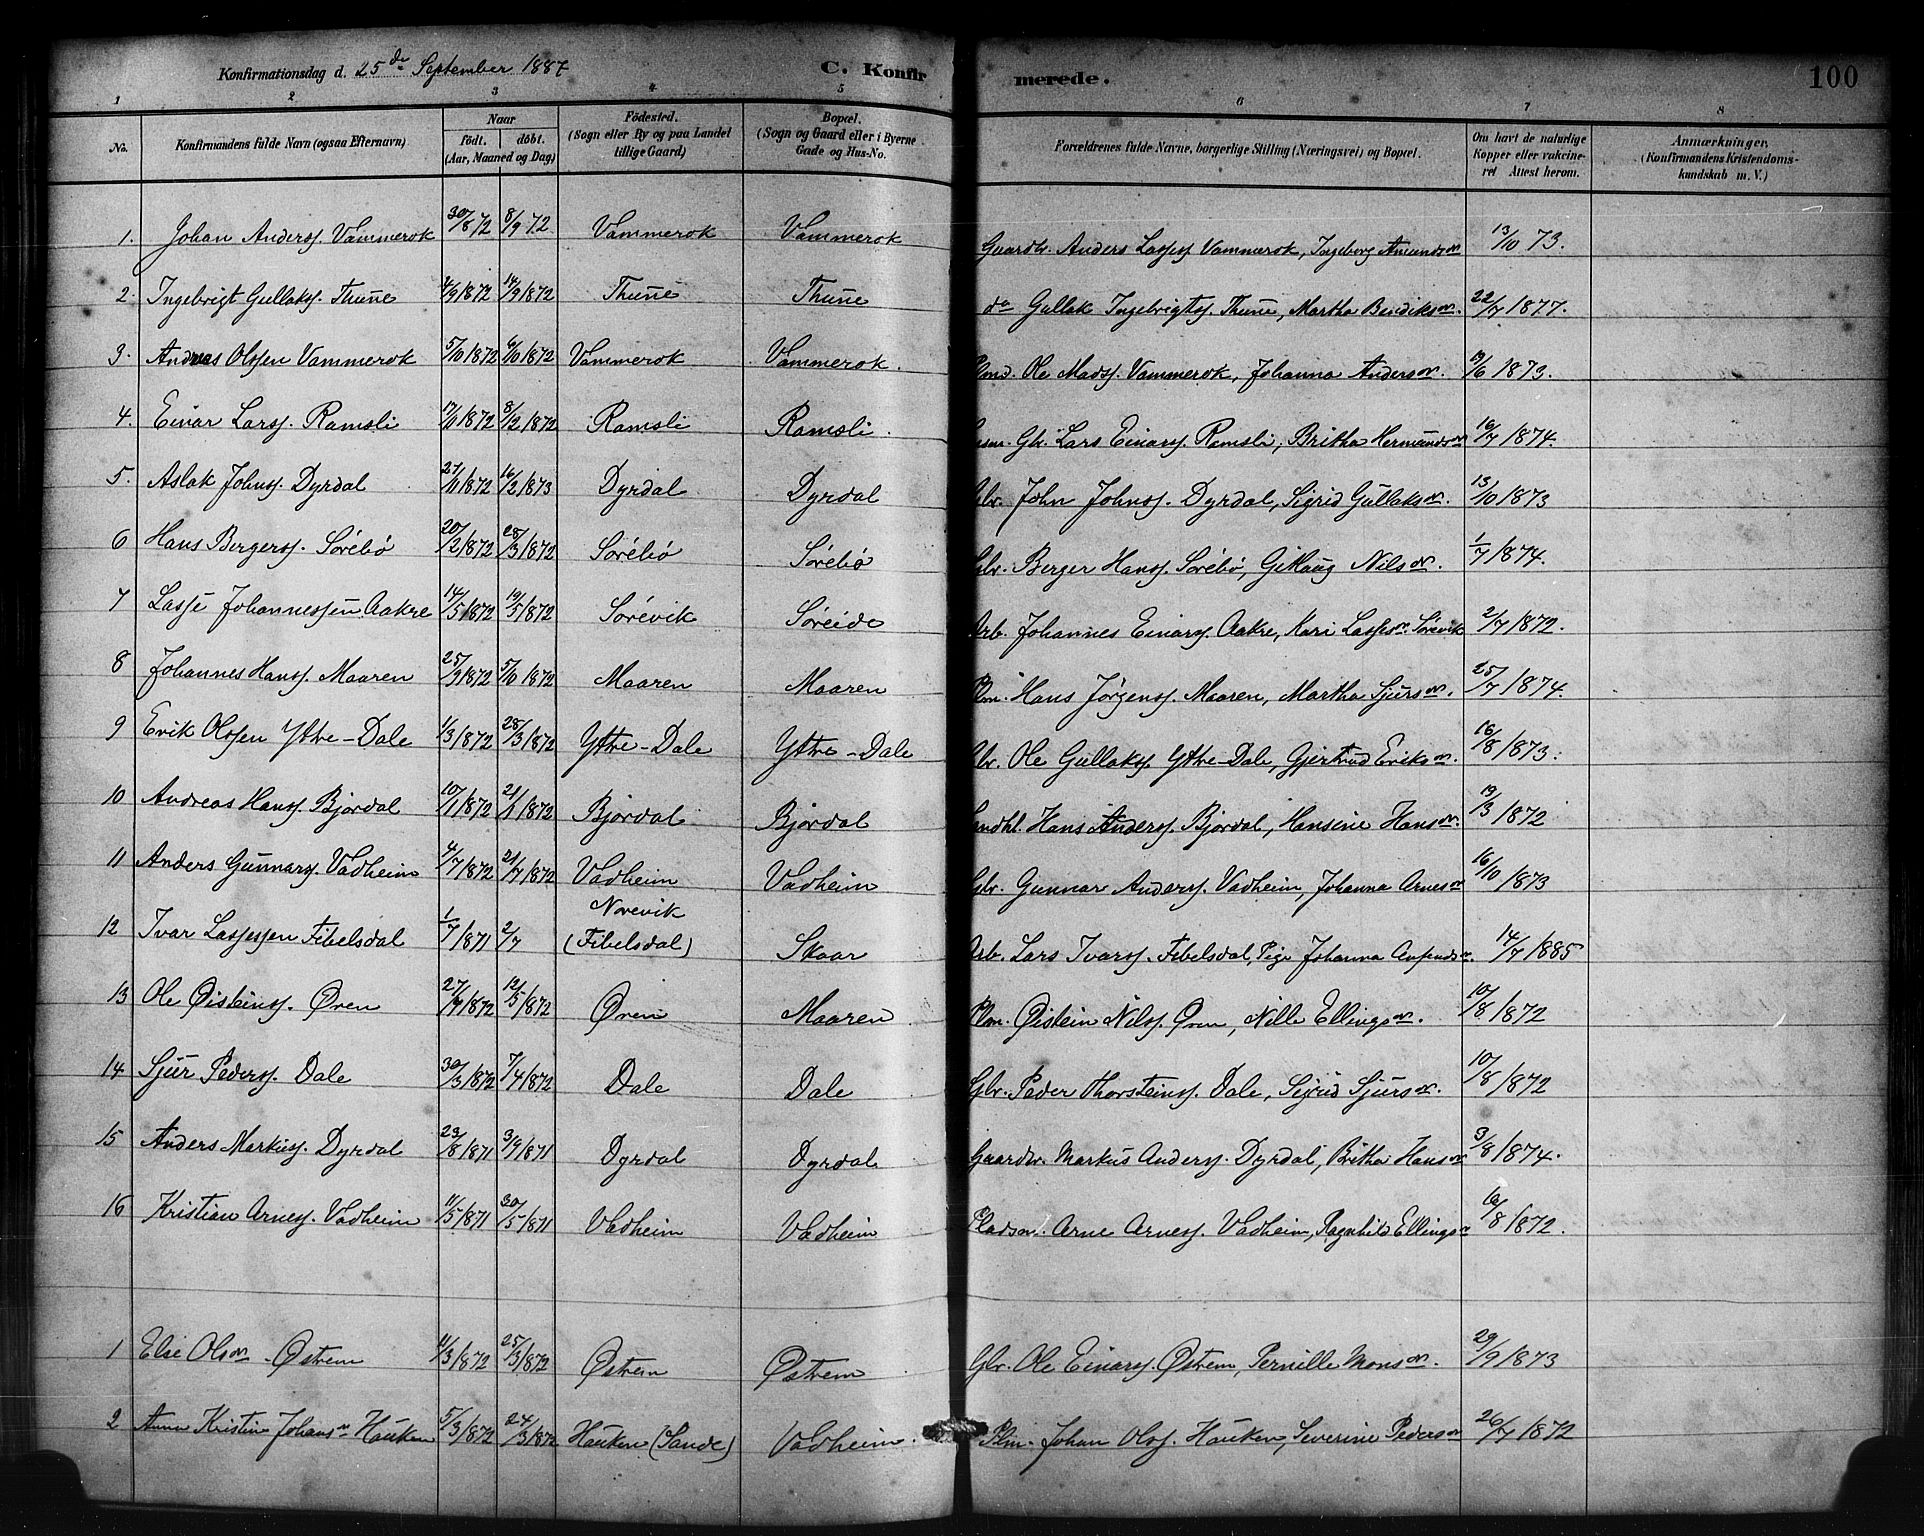 Konfirmationsdag d. 25de September 1887 C. Konfir merede. 100
1 2 3 4 5 6 7 8
No. Konfirmandens fulde Navn (ogsaa Efternavn) Naar födt. döbt. (Aar, Maaned og Dag) Födested. (Sogn eller By og paa Landet tillige Gaard) Bopæl. (Sogn og Gaard eller i Byerne Gade og Hus-No. Forældrenes fulde Navne, borgerlige Stilling (Næringsvei) og Bopæl. Om havt de naturlige Kopper eller vakcineret Attest herom. Anmærkninger. (Konfirmandens Kristendomskundskab m. V.)
1. Johan Anderss. Vammerok 30/8 72 8/9 72 Vammerok Vammerok Gaardbr. Anders Lasses Vammerok, Ingeborg Amundsdr 13/10 73.
2. Ingebrigt Gullakss. Thune 4/9 1872 14/9 1872 Thune Thune do Gullak Ingebrigtss. Thune, Martha Bendiksdr. 22/7 1877.
3. Andreas Olssen Vammerok 5/10 1872 6/10 1872 Vammerok Vammerok. Plmd. Ole Madss. Vammerok, Johanna Andersdr. 19/6 1873.
4. Einar Larss. Ramsli 17/11 1872 8/12 1872 Ramsli Ramsli. Gbr. Lars Einarss. Ramsli, Britha Hermundsdr 16/7 1874.
5. Aslak Johnss. Dyrdal 27/11 1872 16/2 1873 Dyrdal Dyrdal Gbr. John Johnss. Dyrdal, Sigrid Gullaksdr. 13/10 1873
6 Hans Bergerss. Sörebø 20/2 1872 28/3 1872 Sörebø Sörebø Gbr. Berger Hanss. Sörebø, Gitlaug Nilsdr. 1/7 1874.
7 Lasse Johannessen Aakre 14/5 1872 19/5 1872 Sörevik Söreide Arb. Johannes Einarss. Aakre, Kari Lassesdr. Sörevik 2/7 1872.
8 Johannes Hanss. Maaren 25/9 1872 5/10 1872 Maaren Maaren Plm. Hans Jørgenss. Maaren, Martha Sjursdr. 25/7 1874.
9 Erik Olssen Ytre-Dale 1/3 1872 28/3 1872 Ytre-Dale Ytre-Dale Gbr. Ole Gullakss. Ytre-Dale, Gjertrud Eriksdr. 16/8 1873.
10 Andreas Hanss. Bjordal 10/1 1872 21/1 1872 Bjordal Bjordal Hans Anderss. Bjordal, Hansine Hansdr. 19/3 1872
11 Anders Gunnarss. Vadheim 4/7 1872 21/7 1872 Vadheim Vadheim Gbr. Gunnar Anderss. Vadheim, Johanna Arnesdr 16/10 1873
12 Ivar Lassesen Fibelsdal 1/7 1871 2/7 Norevik (Fibelsdal) Skaar Arb. Lars Ivarss. Fibelsdal, Pige Johanna 14/7 1885
13 Ole Øisteinss. Øren 27/9 1872 12/5 1872 Øren Maaren Plm. Øistein Nilss. Øren, Nille Ellingsdr. 10/8 1872
14 Sjur Pederss. Dale 30/3 1872 7/4 1872 Dale Dale Gbr. Peder Thorsteinss. Dale, Sigrid Sjursdr. 10/8 1872
15 Anders Markuss. Dyrdal 23/8 1871 3/9 1871 Dyrdal Dyrdal Gaardbr. Markus Anderss. Dyrdal, Britha Hansdr 3/8 1874.
16 Kristian Arness. Vadheim 11/5 1871 30/5 1871 Vadheim Vadheim Pladsm. Arne Arness. Vadheim, Ragnhild Ellingsdr 19/8 1872.
1 Else Olsdr Østrem 11/3 1872 25/3 1872 Østrem Østrem Gbr. Ole Einarss. Østrem, Pernille Monsdr. 29/9 1873
2 Anna Kristine Johansdr Hauken 5/3 1872 24/3 1872 Hauken (Sande) Vadheim. Plm. Johan Olss. Hauken, Severine Pedersdr 26/7 1872